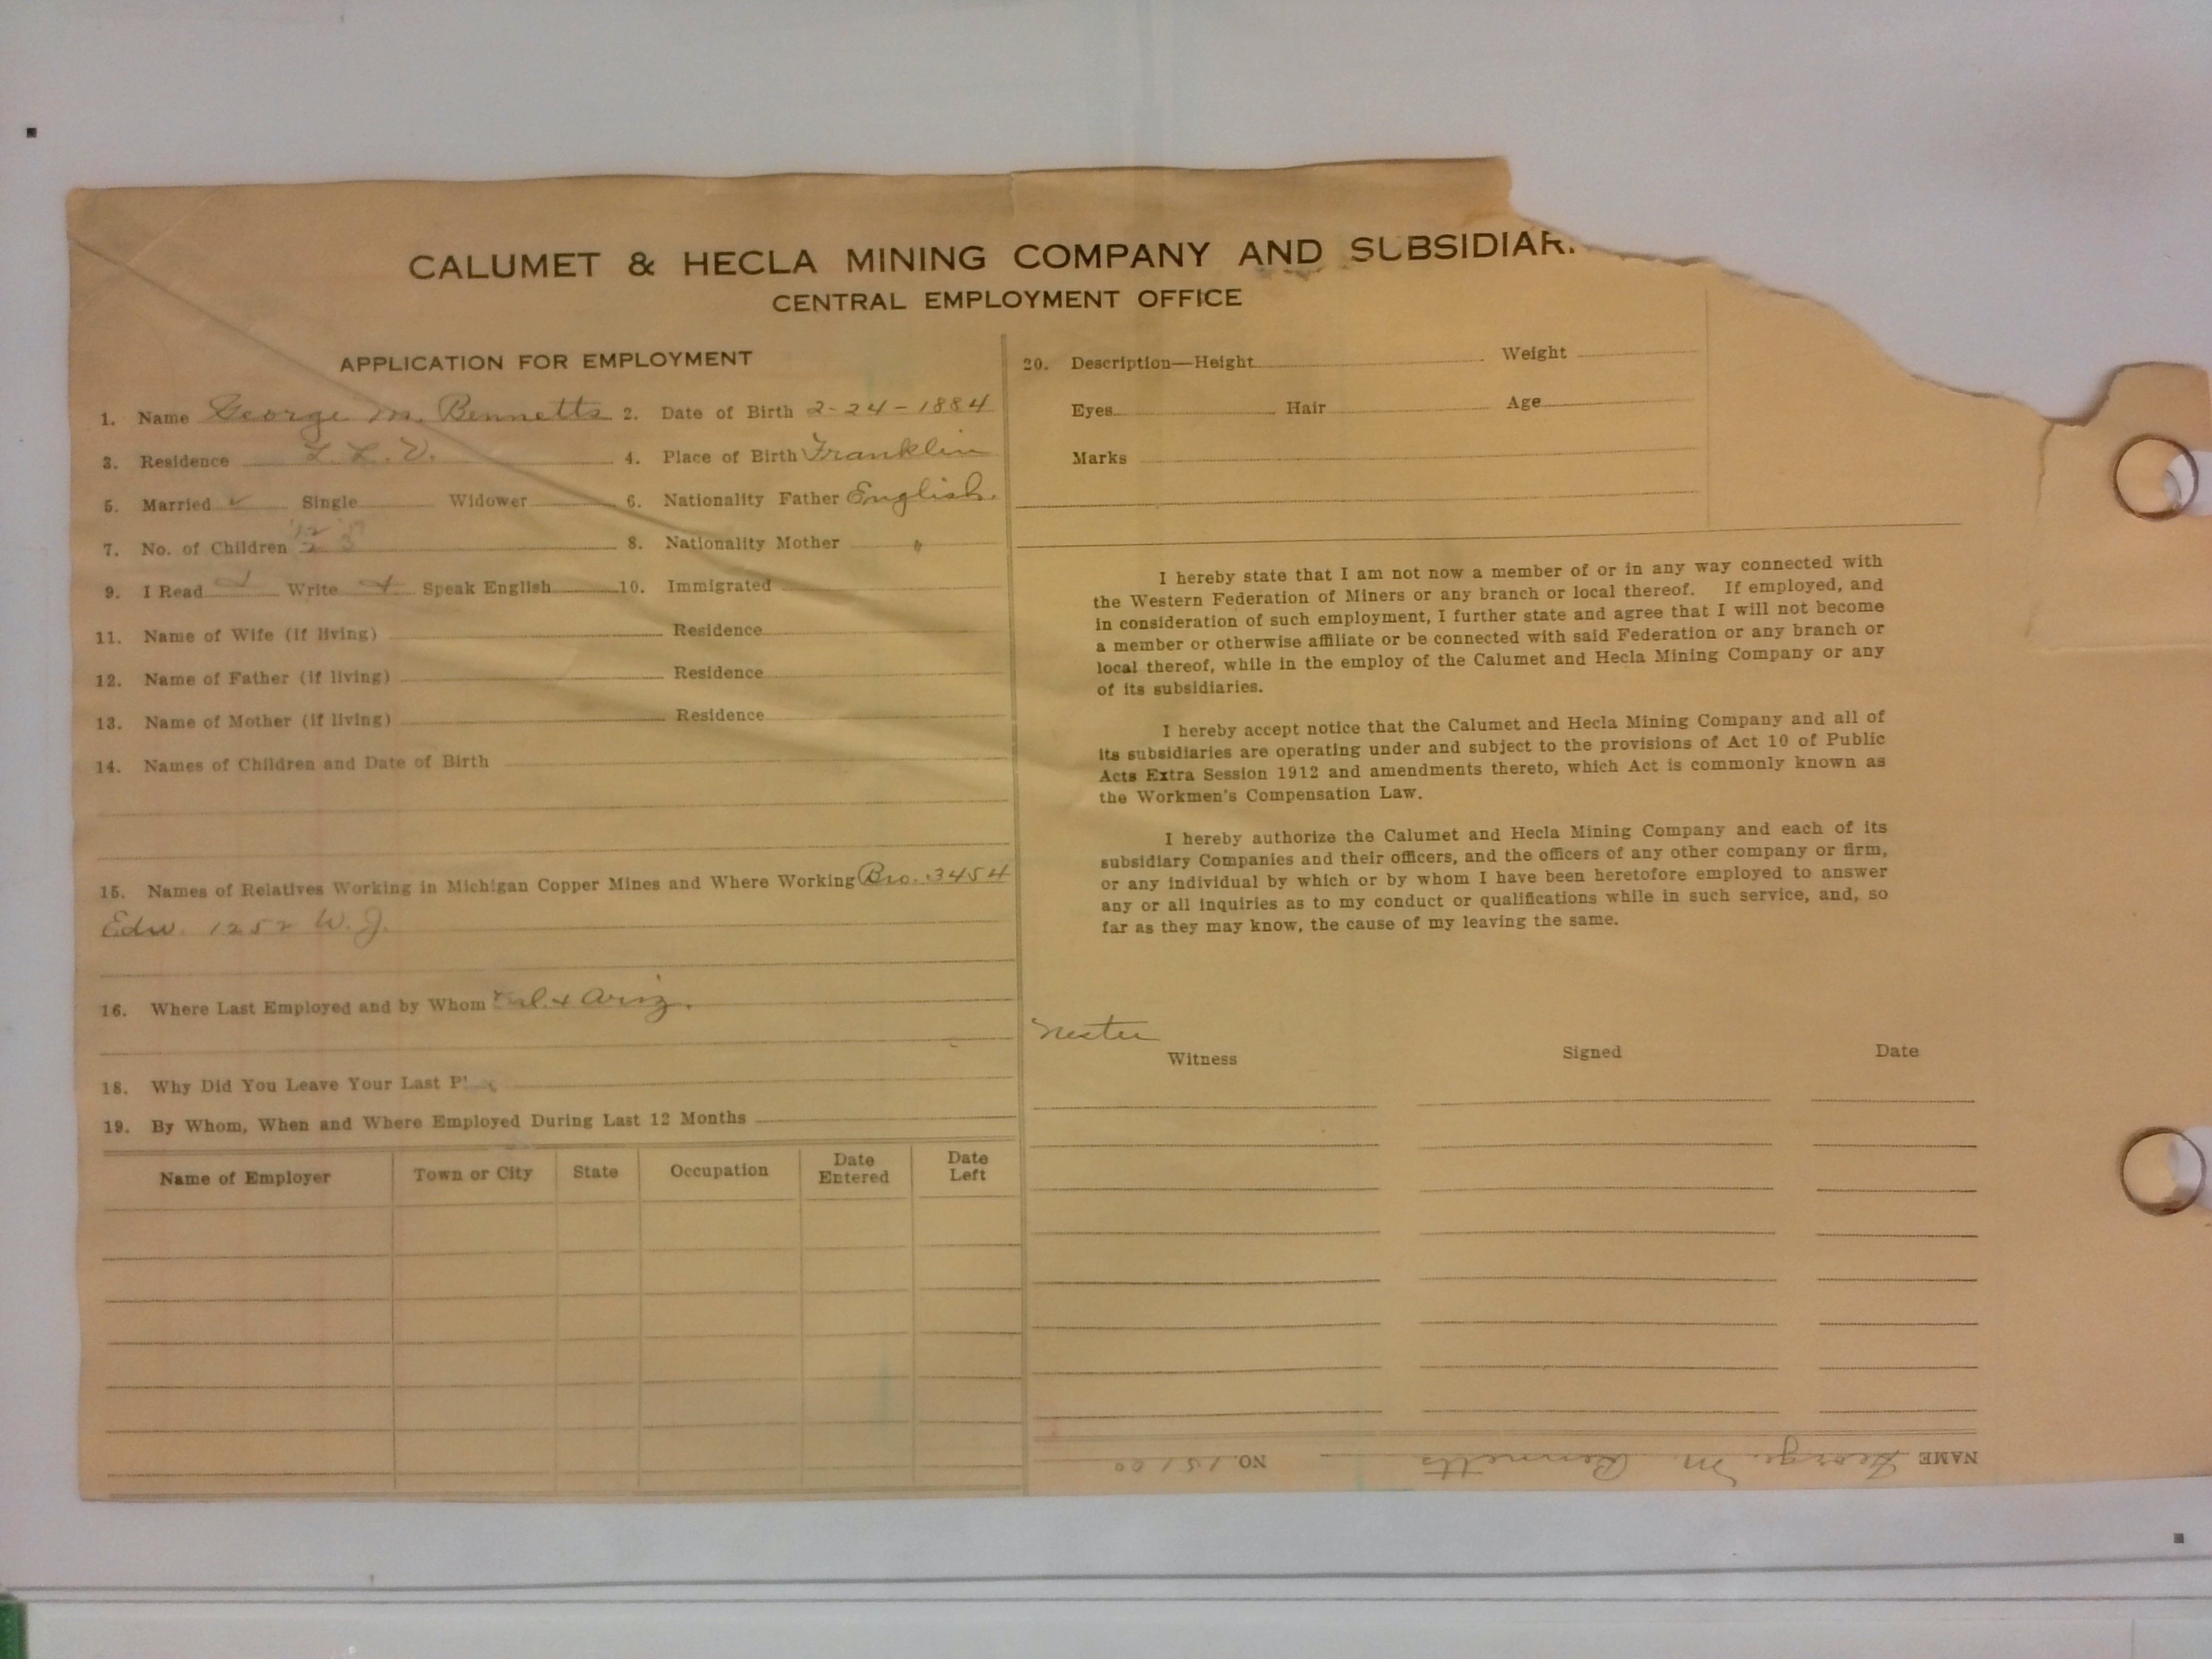 CALUMET & HECLA MINING COMPANY AND SUBSIDIAR
CENTRAL EMPLOYMENT OFFICE
APPLICATION FOR EMPLOYMENT
1. Name George M. Bennetts 2. Date of Birth 2-24-1884
3. Residence L. L. V. 4. Place of Birth Franklin
5. Married ✓ Single Widower 6. Nationality Father English.
7. No. of Children 8. Nationality Mother "
9. I Read Write Speak English 10. Immigrated
11. Name of Wife (if living) Residence
12. Name of Father (if living) Residence
13. Name of Mother (if living) Residence
14. Names of Children and Date of Birth
15. Names of Relatives Working in Michigan Copper Mines and Where Working Bro. 3454
Edw. 1252 W. J.
16. Where Last Employed and by Whom Cal. + Ariz.
18. Why Did You Leave Your Last
19. By Whom, When and Where Employed During Last 12 Months
Name of Employer Town or City State Occupation Date Entered Date Left
20. Description—Height Weight
Eyes Hair Age
Marks
I hereby state that I am not now a member of or in any way connected with
the Western Federation of Miners or any branch or local thereof. If employed, and
in consideration of such employment, I further state and agree that I will not become
a member or otherwise affiliate or be connected with said Federation or any branch or
local thereof, while in the employ of the Calumet and Hecla Mining Company or any
of its subsidiaries.
I hereby accept notice that the Calumet and Hecla Mining Company and all of
its subsidiaries are operating under and subject to the provisions of Act 10 of Public
Acts Extra Session 1912 and amendments thereto, which Act is commonly known as
the Workmen's Compensation Law.
I hereby authorize the Calumet and Hecla Mining Company and each of its
subsidiary Companies and their officers, and the officers of any other company or firm,
or any individual by which or by whom I have been heretofore employed to answer
any or all inquiries as to my conduct or qualifications while in such service, and, so
far as they may know, the cause of my leaving the same.
Nester
Witness Signed Date
NAME George M Bennetts NO. 15100